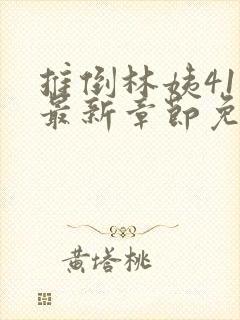 推倒林姨41
最新章节免
黄塔桃